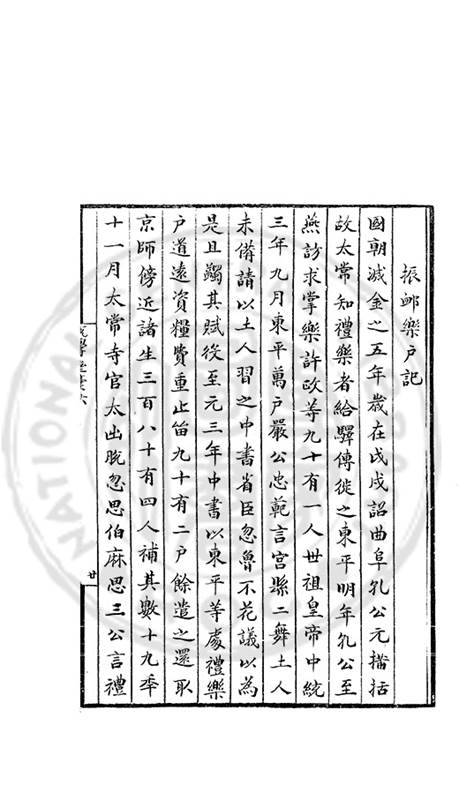 振䘏樂戶記
國朝滅金之五年歲在戊戌詔曲阜孔公元措括
故太常知禮樂者給驛傳徙之東平明年孔公至
燕訪求掌樂許政等九十有一人世祖皇帝中統
三年九月東平萬戶嚴公忠範言宮縣二舞土人
未備請以土人習之中書省臣忽魯不花議以為
是且蠲其賦役至元三年中書以東平等處禮樂
戶道遠資糧費重止留九十有二戶餘遣之還取
京師傍近諸生三百八十有四人補其數十九年
十一月太常寺官太出脫忽思伯麻思三公言禮
廿